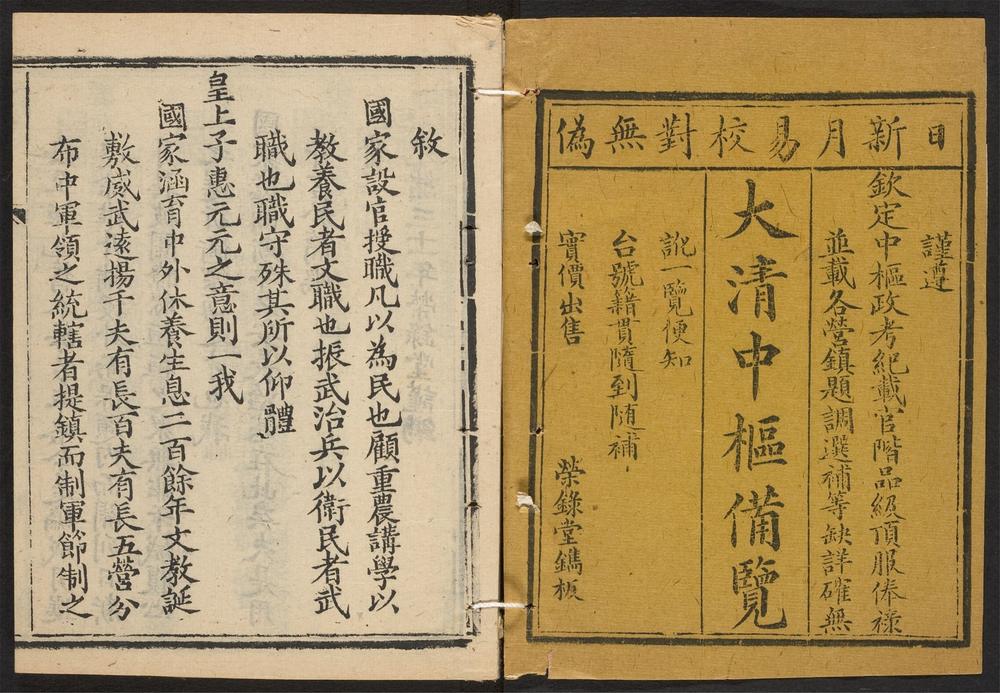 日新月易校對無偽
謹遵
欽定中樞政考紀載官階品級頂服俸祿
並載各營鎮題調選補等缺詳確無
大清中樞備覽
訛一覽便知
台號籍貫隨到随補
實價出售
榮錄堂鐫板
敘
國家設官授職凡以為民也顧重農講學以
教養民者文職也振武治兵以衛民者武
職也職守殊其所以仰體
皇上子惠元元之意則一我
國家涵育中外休養生息二百餘年文教誕
敷威武遠揚千夫有長百夫有長五營分
布中軍領之統轄者提鎮而制軍節制之